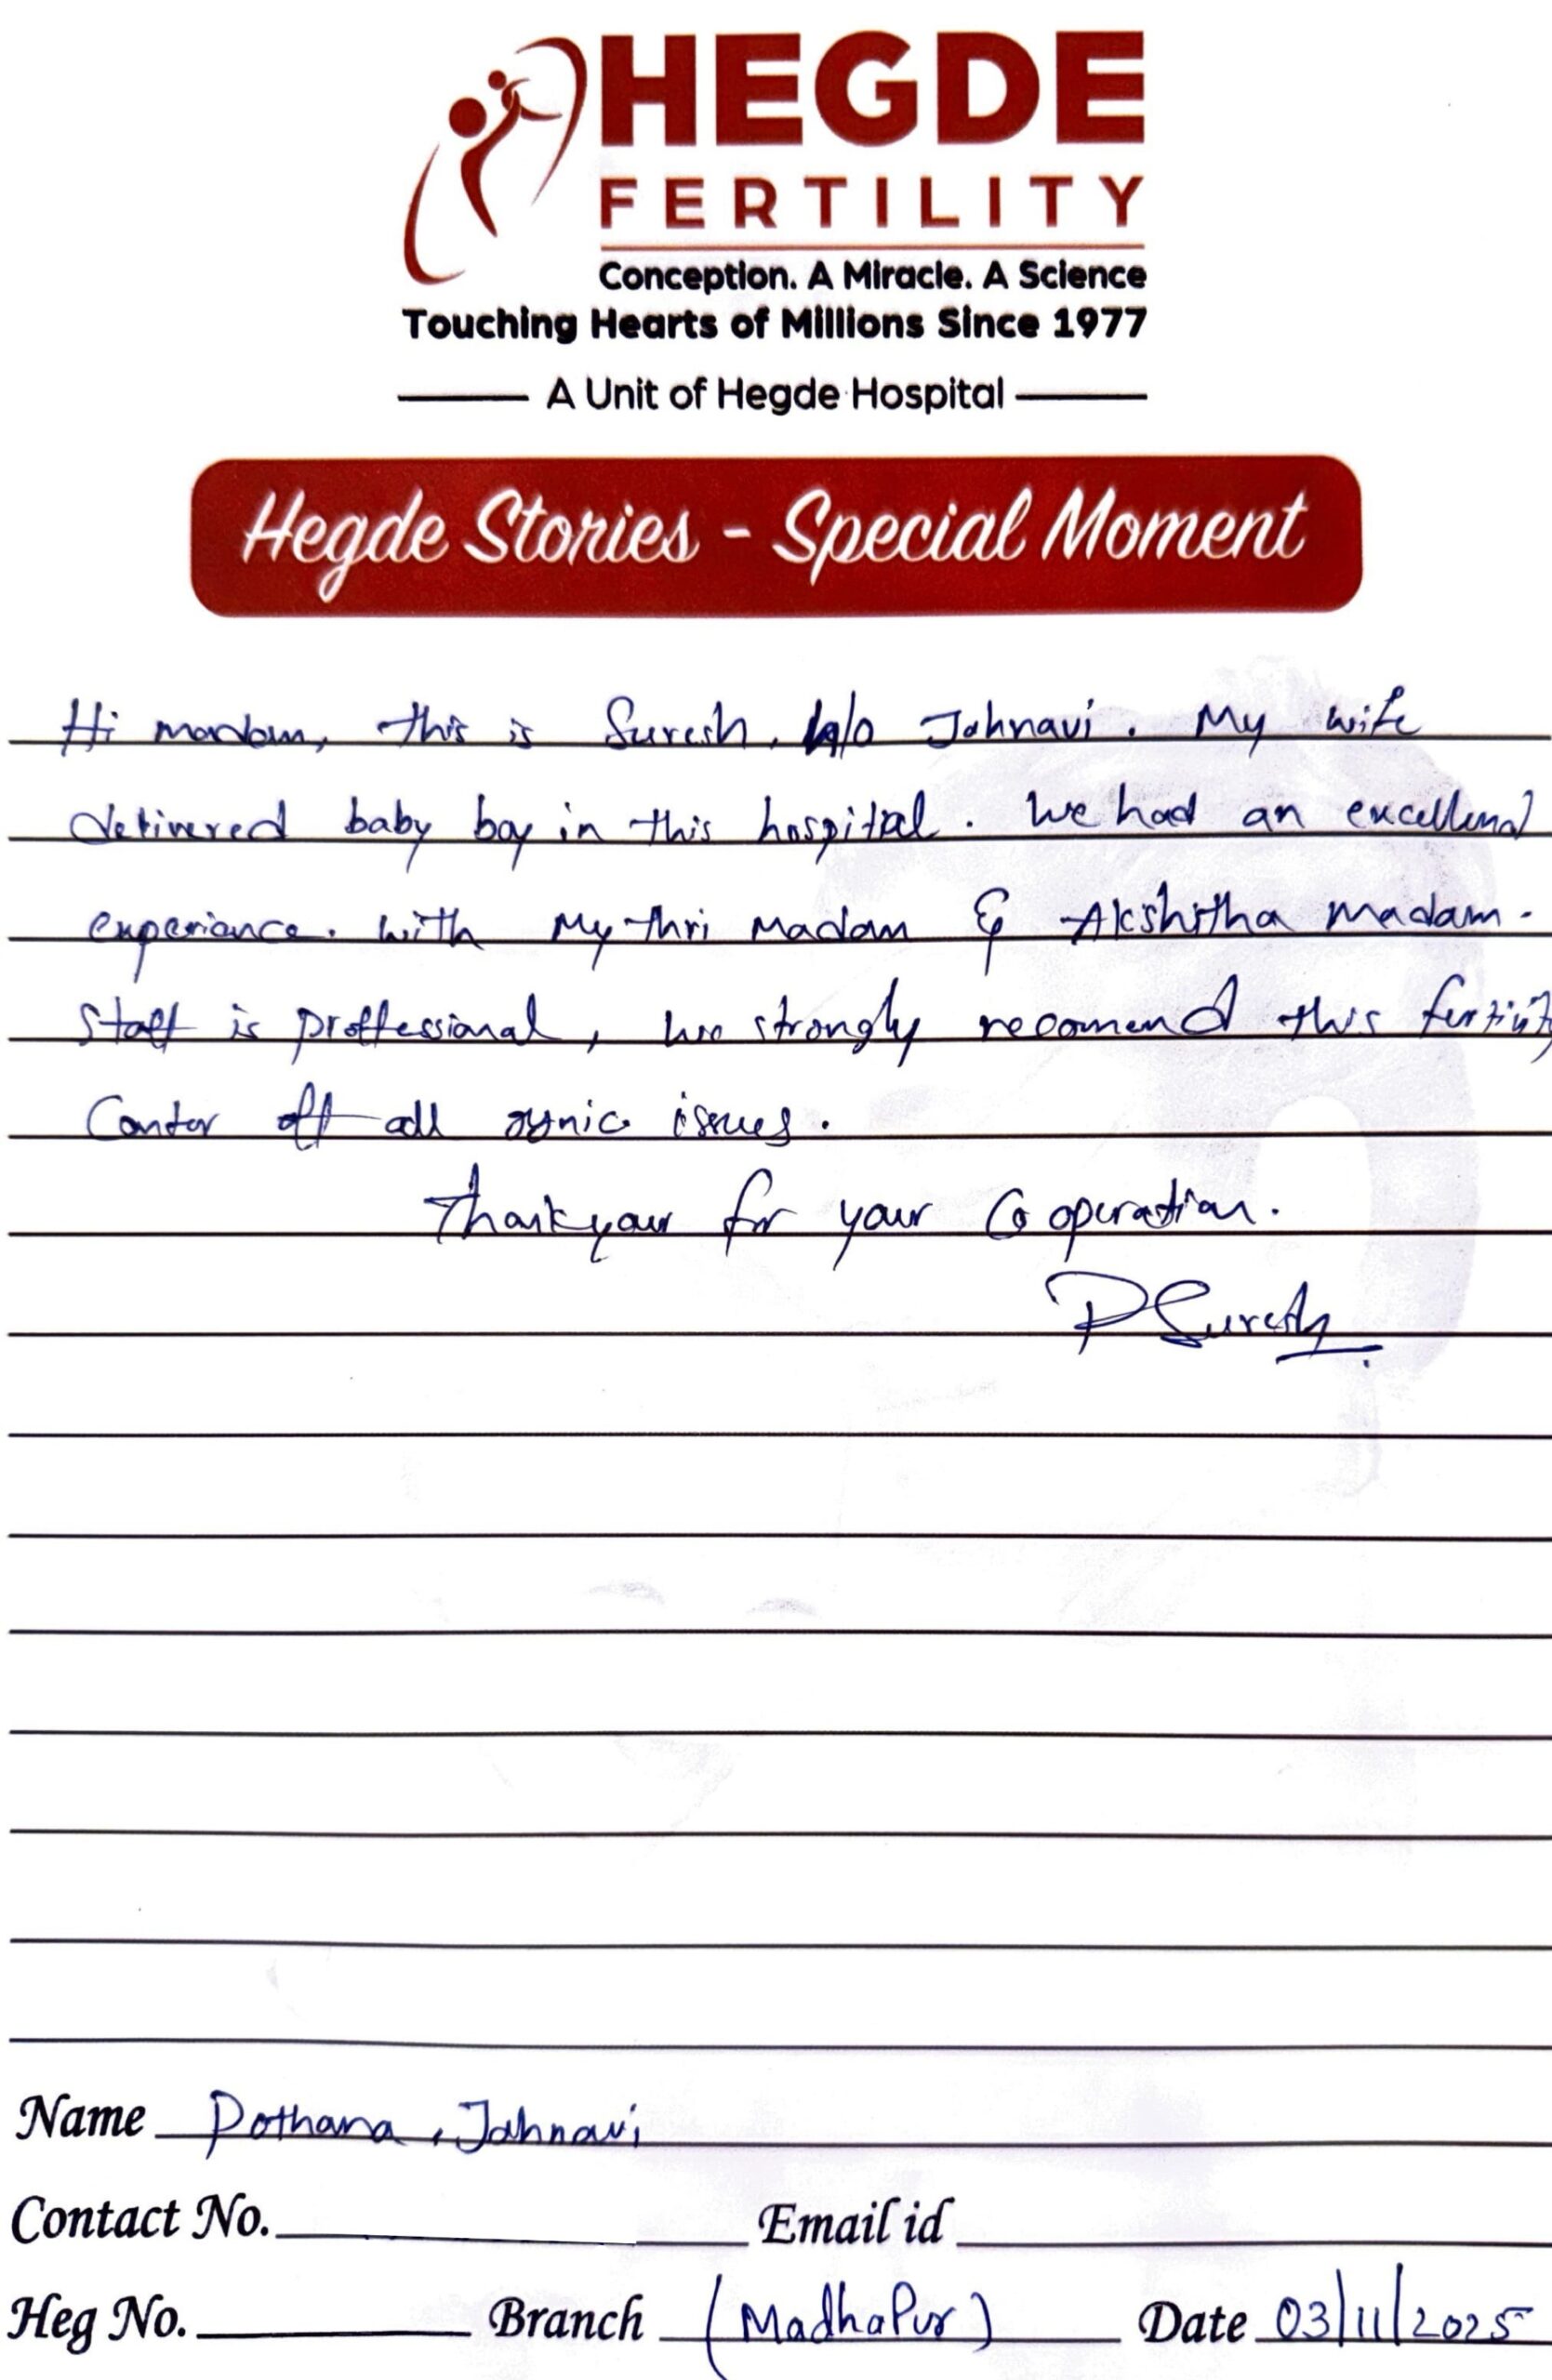 HEGDE
FERTILITY
Conception. A Miracle. A Science
Touching Hearts of Millions Since 1977
A Unit of Hegde Hospital
Hegde Stories - Special Moment
Hi madam, this is Suresh, H/o Jahnavi. My wife
delivered baby boy in this hospital. We had an excellent
experience. with Mythri Madam & Akshitha Madam.
Staff is proffessional, we strongly recomend this fertility
Center off all gynic issues.
Thankyour for your Co operation.
P Suresh
Name Pothana, Jahnavi
Contact No. Email id
Heg No. Branch (MadhaPur) Date 03/11/2025